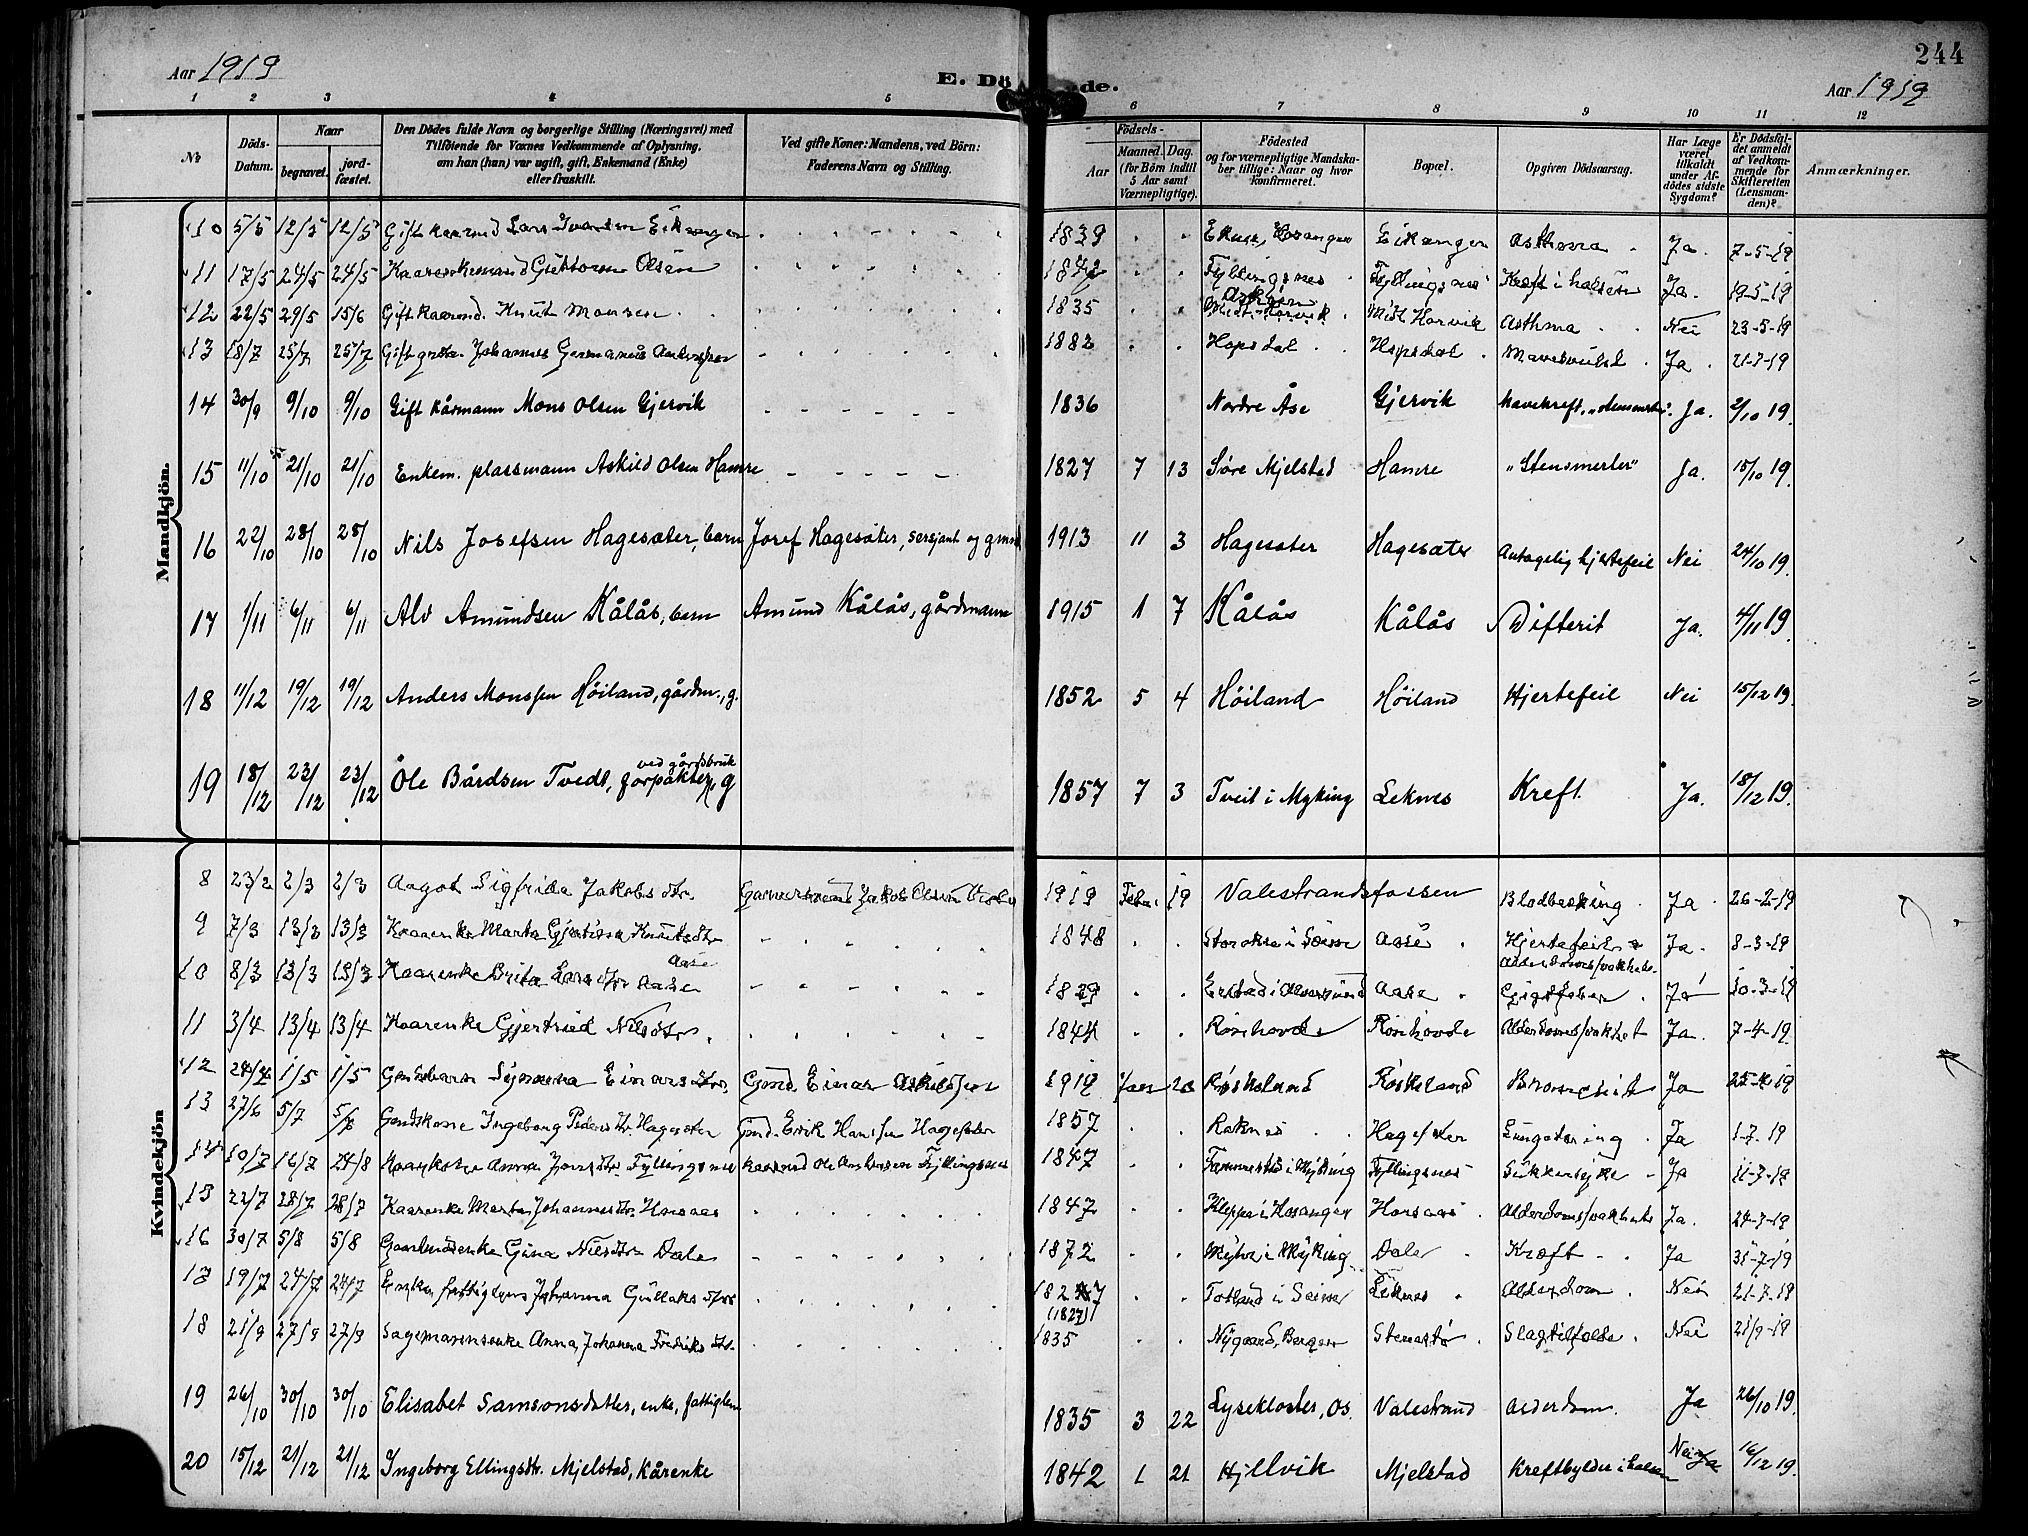 244
Aar 1919
E. Dö de.
Aar 1919
1 2 3 4 5 6 7 8 9 10 11 12
No
Döds-Datum.
Naar
begravet.
jord-fæstet.
Den Dödes fulde Navn og borgerlige Stilling (Næringsvei) med
Tilföiende for Voxnes Vedkommende af Oplysning,
om han (hun) var ugift, gift, Enkemand (Enke)
eller fraskilt.
Ved gifte Koner: Mandens, ved Börn:
Faderens Navn og Stilling.
Födsels-
Aar
Maaned. Dag.
(for Börn indtil
5 Aar samt
Værnepligtige).
Födested
og for værnepligtige Mandska-
ber tillige: Naar og hvor
konfirmeret.
Bopæl.
Opgiven Dödsaarsag.
Har Læge
været
tilkaldt
under Af-
dödes sidste
Sygdom?
Er Dödsfal-
det anmeldt
af Vedkom-
mende for
Skifteretten
(Lensman-
den)?
Anmærkninger.
Mandkjön.
10 5/5 12/5 12/5 Gift kaarmd Lars Ivarsen Eikanger 1839 Hosanger Eikanger Asthma Ja 7-5-19
11 17/5 24/5 24/5 Kaarenkemand Guttorm Olsen 1842 Fyllingsnes Fyllingsnes Kræft i halsen Ja. 19-5-19
12 22/5 29/5 15/6 Gift kaarmd. Knut Monsen 1835 Midt Horvik Midt Horvik Asthma Nei 23-5-19
13 18/7 25/7 25/7 Gift Johannes Germanus Andersen 1882 Hopsdal Hopsdal Mavesvulst Ja 21-7-19
14 30/9 9/10 9/10 Gift kårmann Mons Olsen Gjervik 1836 Nordre Åse Gjervik Mavekreft Ja. 2/10 19.
15 11/10 21/10 21/10 Enkem. plassmann Askild Olsen Hamre 1827 7 13 Søre Mjelstad Hamre "Stensmerter" Ja. 15/10 19.
16 22/10 28/10 28/10 Nils Josefsen Hagesæter, barn Josef Hagesæter, sersjant og gmd 1913 11 3 Hagesæter Hagesæter Antagelig hjertefeil Nei 24/10 19.
17 1/11 6/11 6/11 Alv Amundsen Kålås, barn Amund Kålås, gårdmann 1915 1 7 Kålås Kålås Difterit Ja. 4/11 19.
18 11/12 19/12 19/12 Anders Monssen Höiland, gårdm., g. 1852 5 4 Höiland Höiland Hjertefeil Nei 15/12 19.
ved gårdsbruk
19 18/12 23/12 23/12 Ole Bårdsen Tvedt, forpakter, g 1857 7 3 Tveit i Myking Leknes Kreft Ja. 18/12 19.
Kvindekjön
8 23/2 2/3 2/3 Aagot Sigfrida Jakobsdtr. Garversvend Jakob Olsen 1919 Febr. 19 Valestrandsfossen Ja 26-2-19
9 7/3 13/3 13/3 Kaarenke Marta Gjertina Knutsdtr 1848 Aase Hjertefeil Ja. 8-3-19
Aase
10 8/3 13/3 13/3 Kaarenke Brita Larsdtr Aase 1829 Aase Gigtfeber Ja 10-3-19
11 3/4 13/4 13/4 Kaarenke Gjertrud Nilsdtr. 1844 Rønhovde Rønhovde Alderdomssvakhet Ja. 7-4-19.
12 24/4 1/5 1/5 Synneva Einarsdtr. Gmd. Einar Askildsen 1919 Jan 20 Røskeland Røskeland Bronchit Ja 25-4-19
13 27/6 5/7 Gmdskone Ingeborg Pedersdtr. Hagesæter Gmd. Erik Hansen Hagesæter 1857 Raknes Hagesæter Lungetæring Ja 1-7-19
14 10/7 16/7 24/8 Kaarkone Anna Jonsdtr Fyllingsnes Kaarmd Ole Andersen Fyllingsnes 1847 Fammestad i Myking Fyllingsnes Sukkersyke Ja 11-7-19
15 22/7 28/7 28/7 Kaarenke Marta Johannesdtr. Horsaas 1847 Kleppe i Hosanger Horsaas Alderdomssvakhet Ja. 24-7-19
16 30/7 5/8 5/8 Gaardmdsenke Gina Nilsdtr Dale 1872 i Myking Dale Kræft Ja 31-7-19
19/7 24/7 24/7 Enke, fattiglem Johanna Gullaksdtr 1827 (1827) Totland i Seim Leknes Alderdom Nei 21-7-19
18 21/9 27/9 27/9 Sagemesterenke Anna Johanna Fredriksdtr. 1835 Nygaard, Bergen Steinstø Slagtilfælde Nei 21/9-19
19 26/10 30/10 30/10 Elisabet Samsonsdatter, enke, fattiglem 1835 3 22 Lysekloster, Os. Valestrand Alderdom. Ja 26/10 19.
20 15/12 21/12 21/12 Ingeborg Ellingsdtr. Mjelstad, Kårenke 1842 1 21 Hjellvik Mjelstad Kreftbylder i halsen Nei 16/12 19.